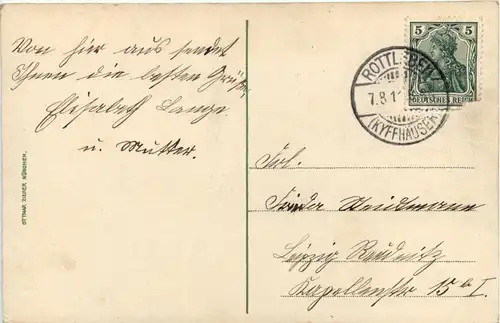 Von hier aus sendet
Ihnen die besten Grüße,
Elisabeth Lange
u. Mutter.
OTTMAR ZIEHER, MÜNCHEN.
5 5
DEUTSCHES REICH
ROTTLEBEN
7.8.11
(KYFFHÄUSER)
Frl.
Leipzig Reudnitz
Kapellenstr 15b I